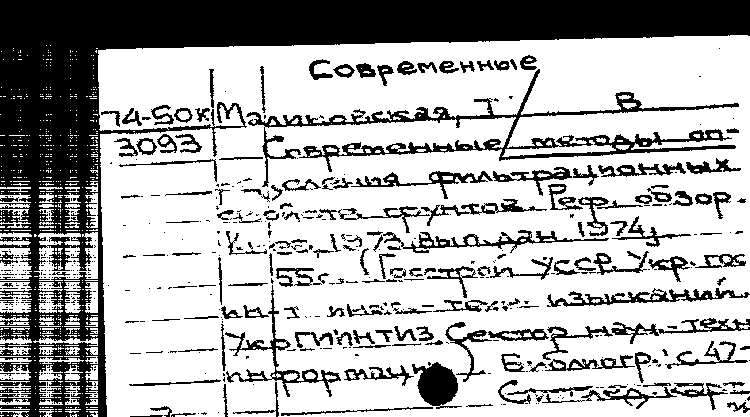 Современные
74-50к Малиновская, Т. В
3093 Современные методы оп-
ределения фильтрационных
свойств грунтов. Реф. обзор.
Киев, 1973, вып. дан. 1974,
55с. (Госстрой УССР. Укр. гос
ин-т инж.-техн. изысканий.
УкрГИИНТИЗ. Сектор науч.-техн
информации). Библиогр.: с. 47-
След. карт